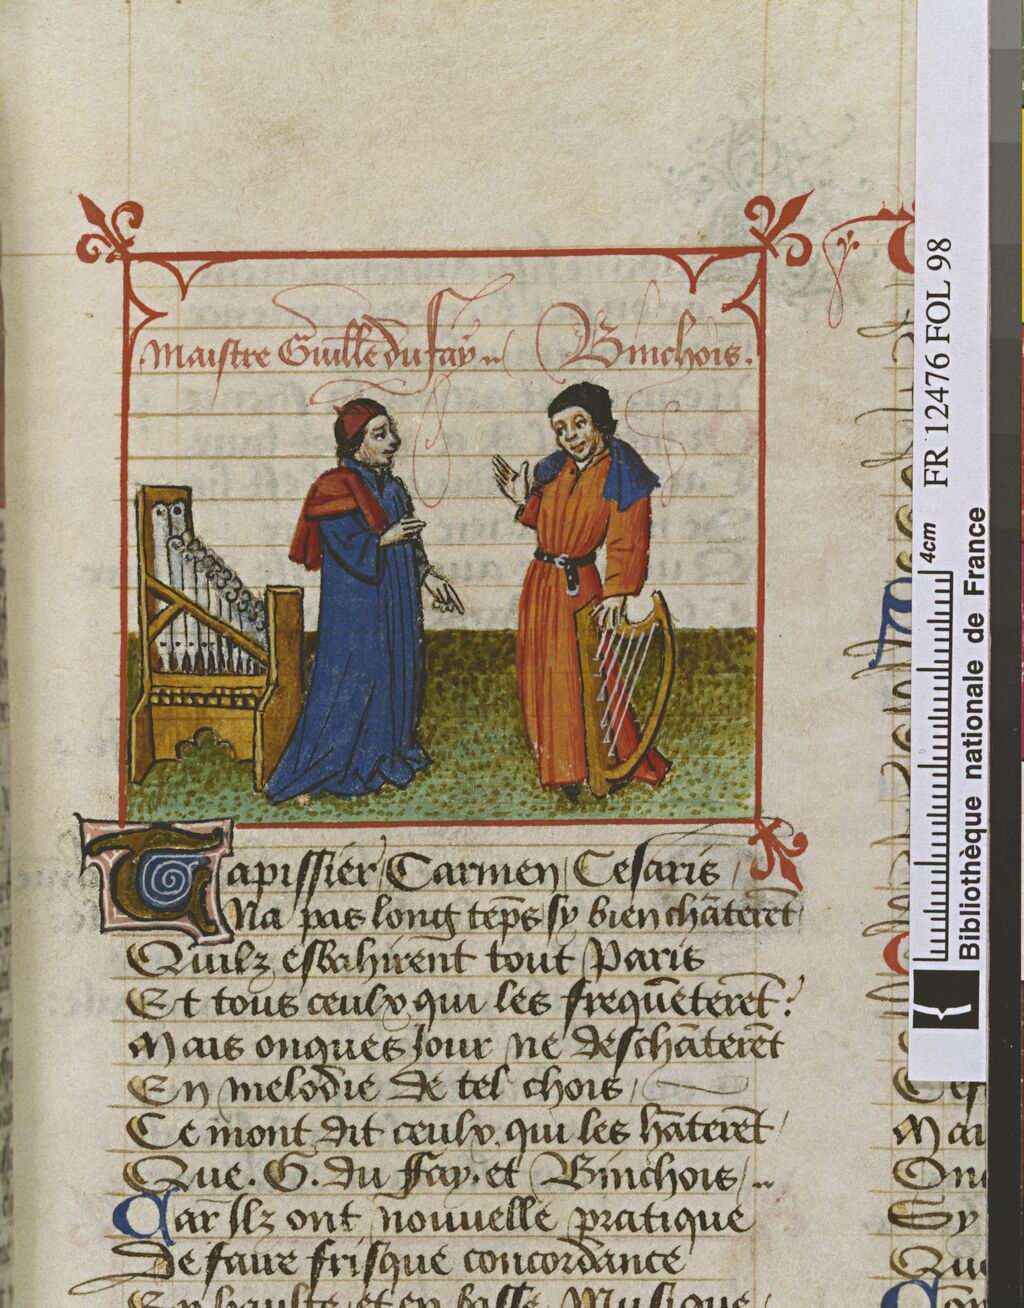 Maistre Guillē du fay .. Binchois.
Tapissier / Carmen / Cesaris /
Na pas long tēps sy bien chāterēt /
Quilz esbahirent tout Paris
Et tous ceulx qui les frequēterēt :
Mais onques Jour ne deschāterēt
En melodie de tel chois /
Ce mont dit ceulx qui les hāterēt /
Que . G . du fay . et Binchois / ..
Car Ilz ont nouuelle pratique
De faire frisque concordance
En haulte et en basse Musique /
FR 12476 FOL 98
4cm
Bibliothèque nationale de France
Mai
Sy
Que